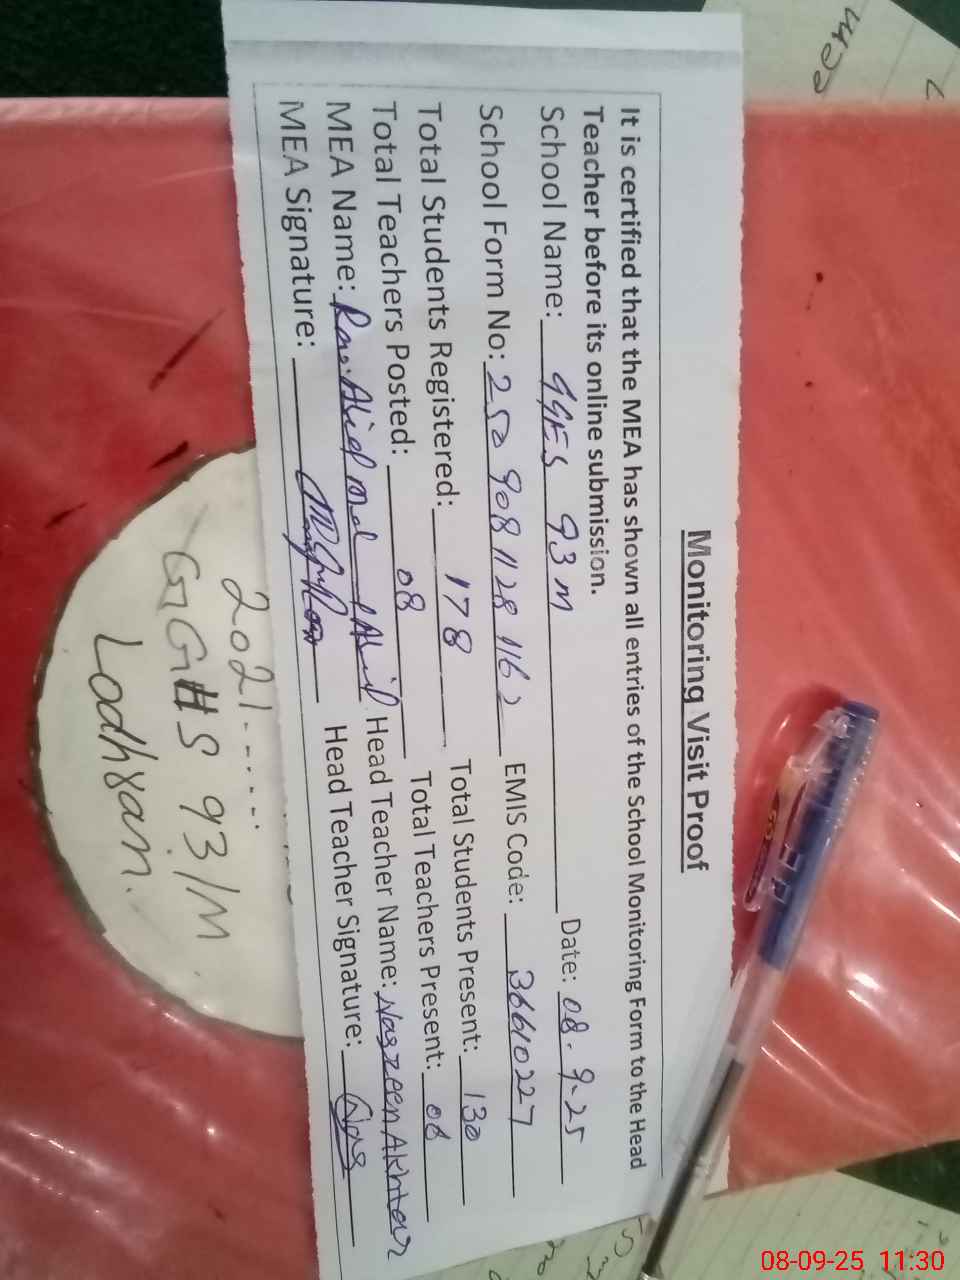 Monitoring Visit Proof
It is certified that the MEA has shown all entries of the School Monitoring Form to the Head
Teacher before its online submission.
School Name: GGES 93 M Date: 08-9-25
School Form No: 250 908 1128 1162 EMIS Code: 36610227
Total Students Registered: 178 Total Students Present: 130
Total Teachers Posted: 08 Total Teachers Present: 08
MEA Name: Rao Abid Head Teacher Name: Nasreen Akhtar
MEA Signature: Head Teacher Signature:
2021.....
GGHS 93/M
Lodhran.
08-09-25 11:30